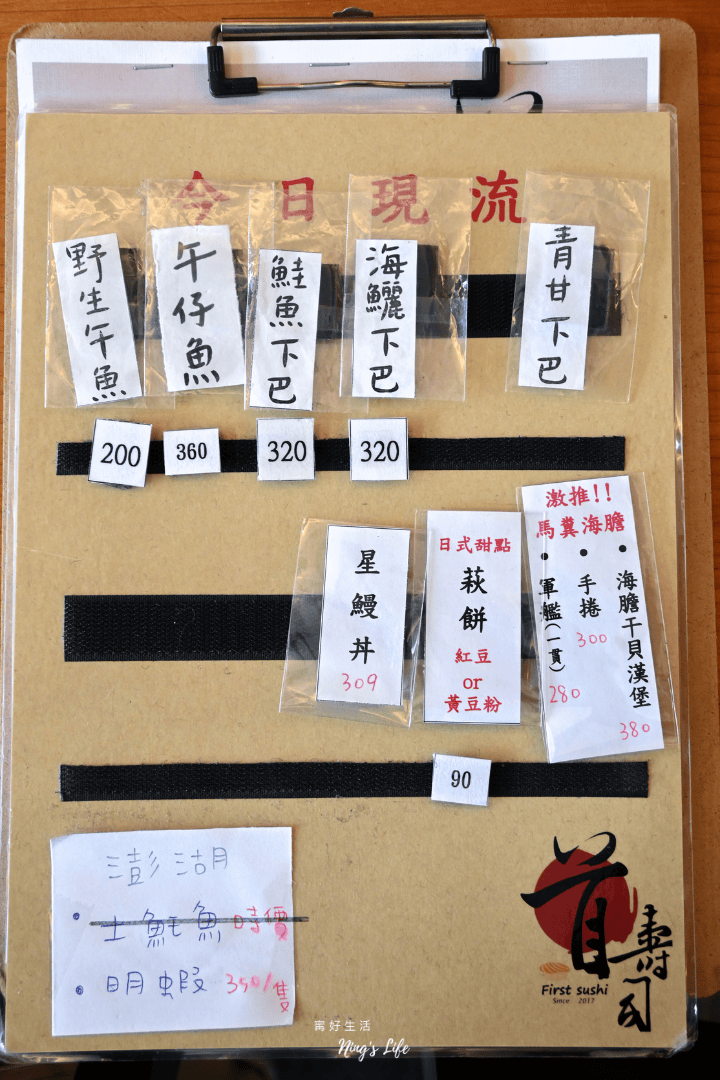 今日現流
野生午魚
午仔魚
鮭魚下巴
海鱺下巴
青甘下巴
200
360
320
320
星鰻丼
309
日式甜點
萩餅
紅豆
or
黃豆粉
激推!!
馬糞海膽
• 軍艦(一貫) 280
• 手捲 300
• 海膽干貝漢堡 380
90
澎湖
• 土魠魚 時價
• 明蝦 350/隻
首壽司
First sushi
Since 2017
甯好生活
Ning's Life